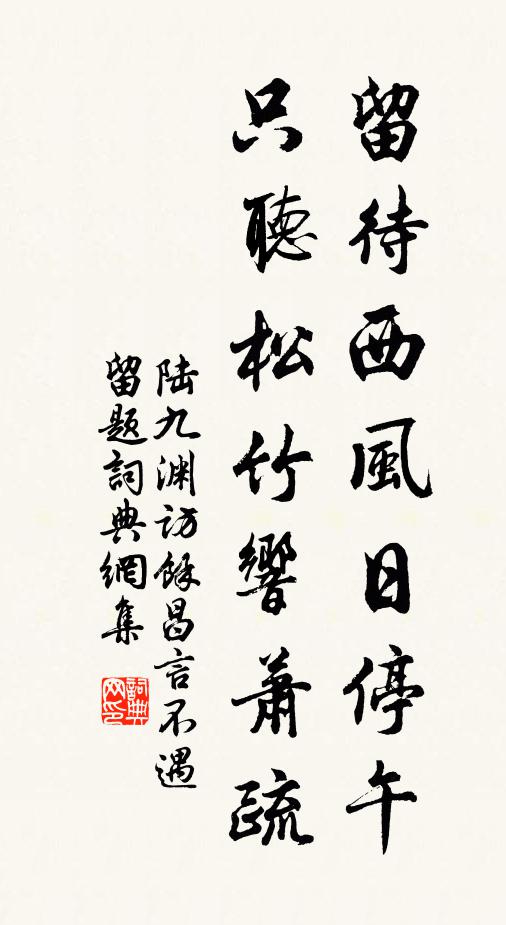 留待西風日停午
只聽松竹響蕭疏
陸九渊訪餘昌言不遇
留题詞典網集
詞典網印